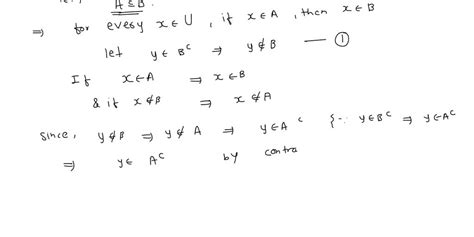 A ⊆ B.
⇒ for every x ∈ U, if x ∈ A, then x ∈ B
let y ∈ Bᶜ ⇒ y ∉ B —— ①
If x ∈ A ⇒ x ∈ B
& if x ∉ B ⇒ x ∉ A
Since, y ∉ B ⇒ y ∉ A ⇒ y ∈ Aᶜ {∵ y ∈ Bᶜ ⇒ y ∈ Aᶜ
⇒ y ∈ Aᶜ by contra